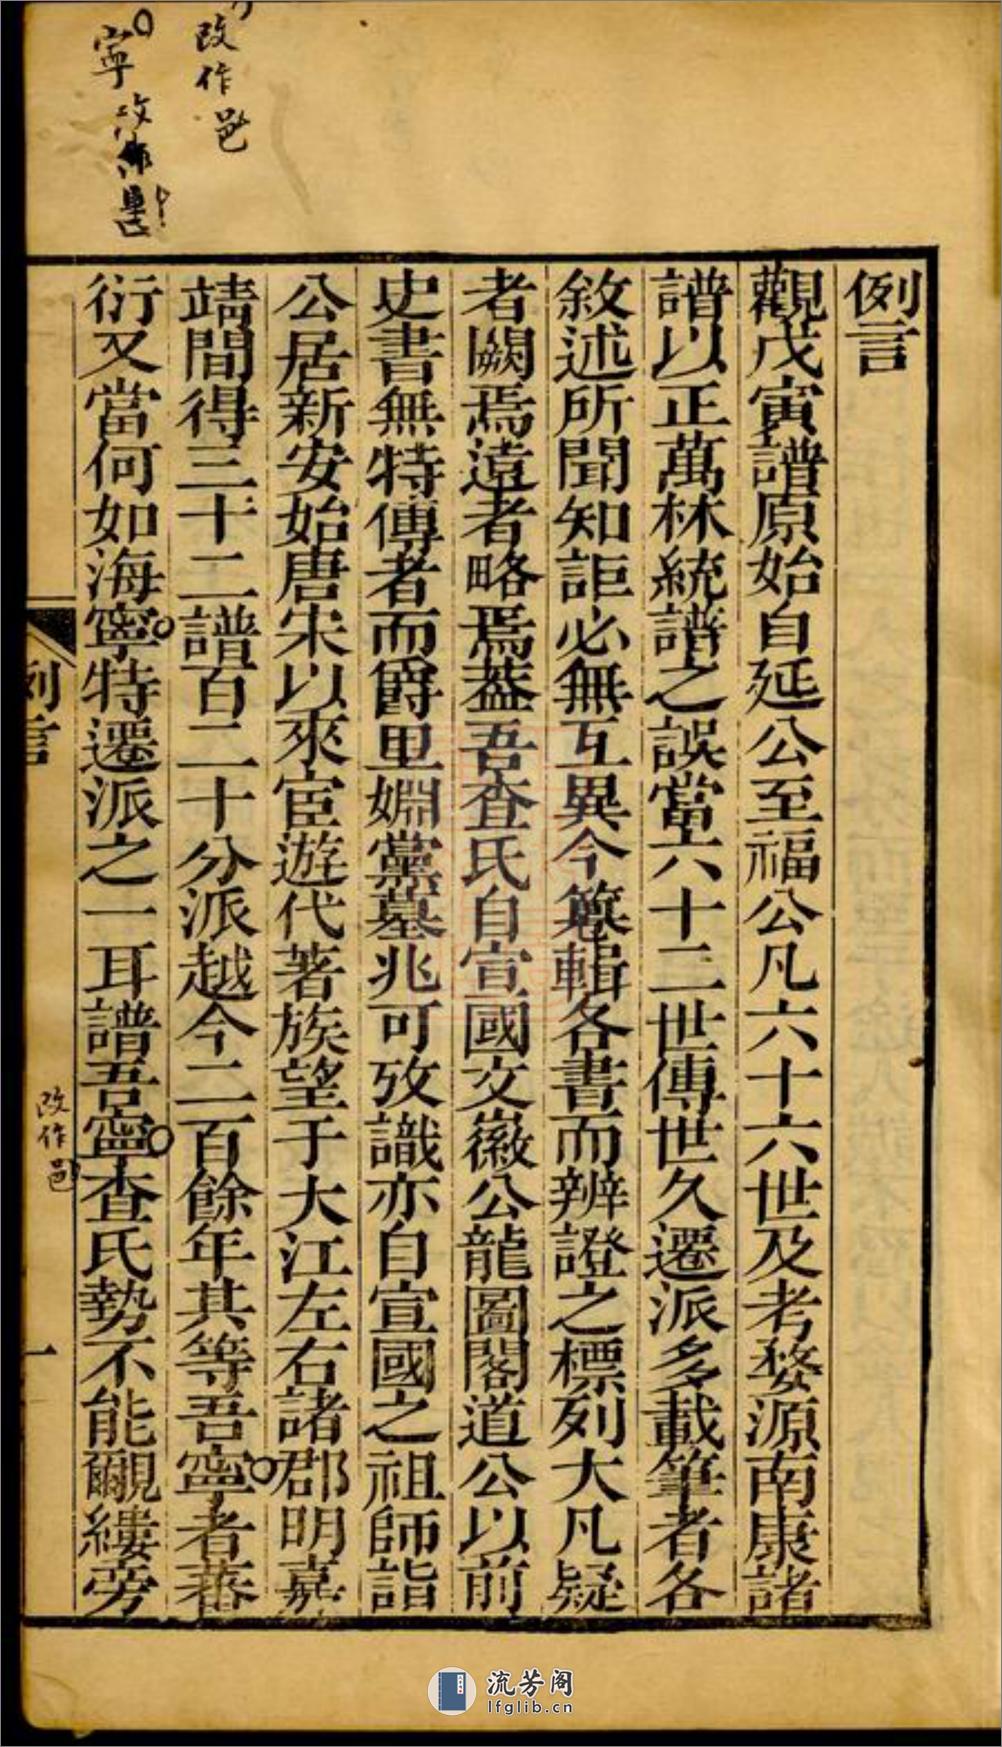 例言
觀戊寅譜原始自延公至福公凡六十六世及考婺源南康諸
譜以正萬林統譜之誤當六十二世傳世久遷派多載筆者各
敘述所聞知詎必無互異今纂輯各書而辨證之標列大凡疑
者闕焉遠者略焉葢吾查氏自宣國文徽公龍圖閣道公以前
史書無特傳者而爵里婣黨墓兆可攷識亦自宣國之祖師詣
公居新安始唐宋以來宦遊代著族望于大江左右諸郡明嘉
靖間得三十二譜百二十分派越今二百餘年其等吾寧者蕃
衍又當何如海寧特遷派之一耳譜吾寧查氏勢不能覼縷旁
例言
一
改作邑
寧改作
改作邑
流芳阁
lfglib.cn